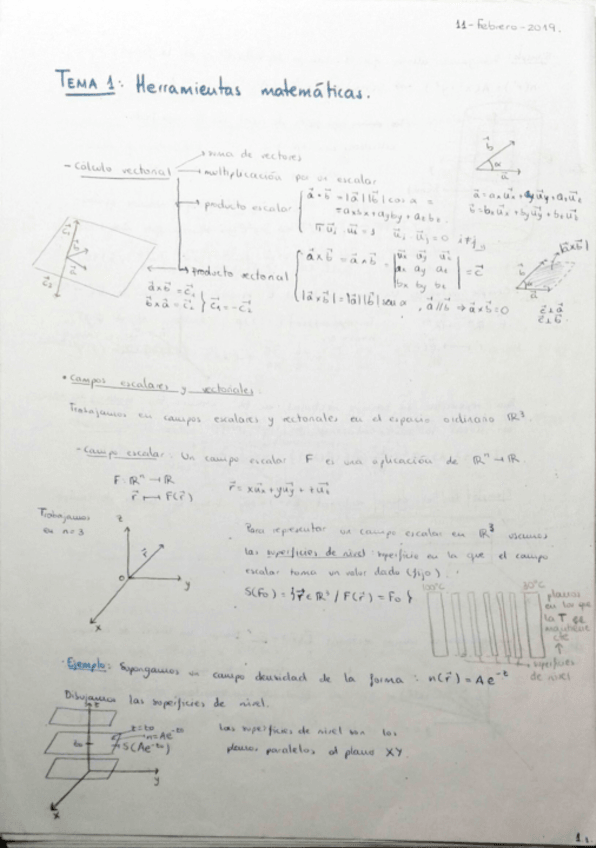 11-Febrero-2019.
TEMA 1: Herramientas matemáticas.
- Cálculo vectorial
→ suma de vectores
→ multiplicación por un escalar
→ producto escalar
a⃗·b⃗ = |a⃗||b⃗|cos α =
= axbx + ayby + azbz
u⃗i·u⃗i = 1 u⃗i·u⃗j = 0 i≠j
b⃗
α
a⃗
a⃗ = axu⃗x + ayu⃗y + azu⃗z
b⃗ = bxu⃗x + byu⃗y + bzu⃗z
→ producto vectorial
a⃗×b⃗ = c⃗1
b⃗×a⃗ = c⃗2 } c⃗1 = -c⃗2
a⃗×b⃗ = | u⃗x u⃗y u⃗z
ax ay az
bx by bz | = c⃗
|a⃗×b⃗| = |a⃗||b⃗|sen α, a⃗//b⃗ → a⃗×b⃗ = 0
|a⃗×b⃗|
b⃗
a⃗
c⃗⊥a⃗
c⃗⊥b⃗
• Campos escalares y vectoriales.
Trabajamos en campos escalares y vectoriales en el espacio ordinario ℝ³.
- Campo escalar: Un campo escalar F es una aplicación de ℝⁿ→ℝ.
F: ℝⁿ → ℝ
r⃗ ↦ F(r⃗)
r⃗ = xu⃗x + yu⃗y + zu⃗z
Trabajamos
en n=3
z
r⃗
O
y
x
Para representar un campo escalar en ℝ³ usamos
las superficies de nivel: superficie en la que el campo
escalar toma un valor dado (fijo).
S(F₀) = {r⃗ ∈ ℝ³ / F(r⃗) = F₀}
100°C
80°C
planos
en los que
la T se
mantiene
cte
↑
superficies
de nivel
Ejemplo: Supongamos un campo densidad de la forma: n(r⃗) = Ae^-z
Dibujamos las superficies de nivel.
z
z = z₀
n = Ae^-z₀
S(Ae^-z₀)
z₀
y
x
Las superficies de nivel son los
planos paralelos al plano XY.
1.